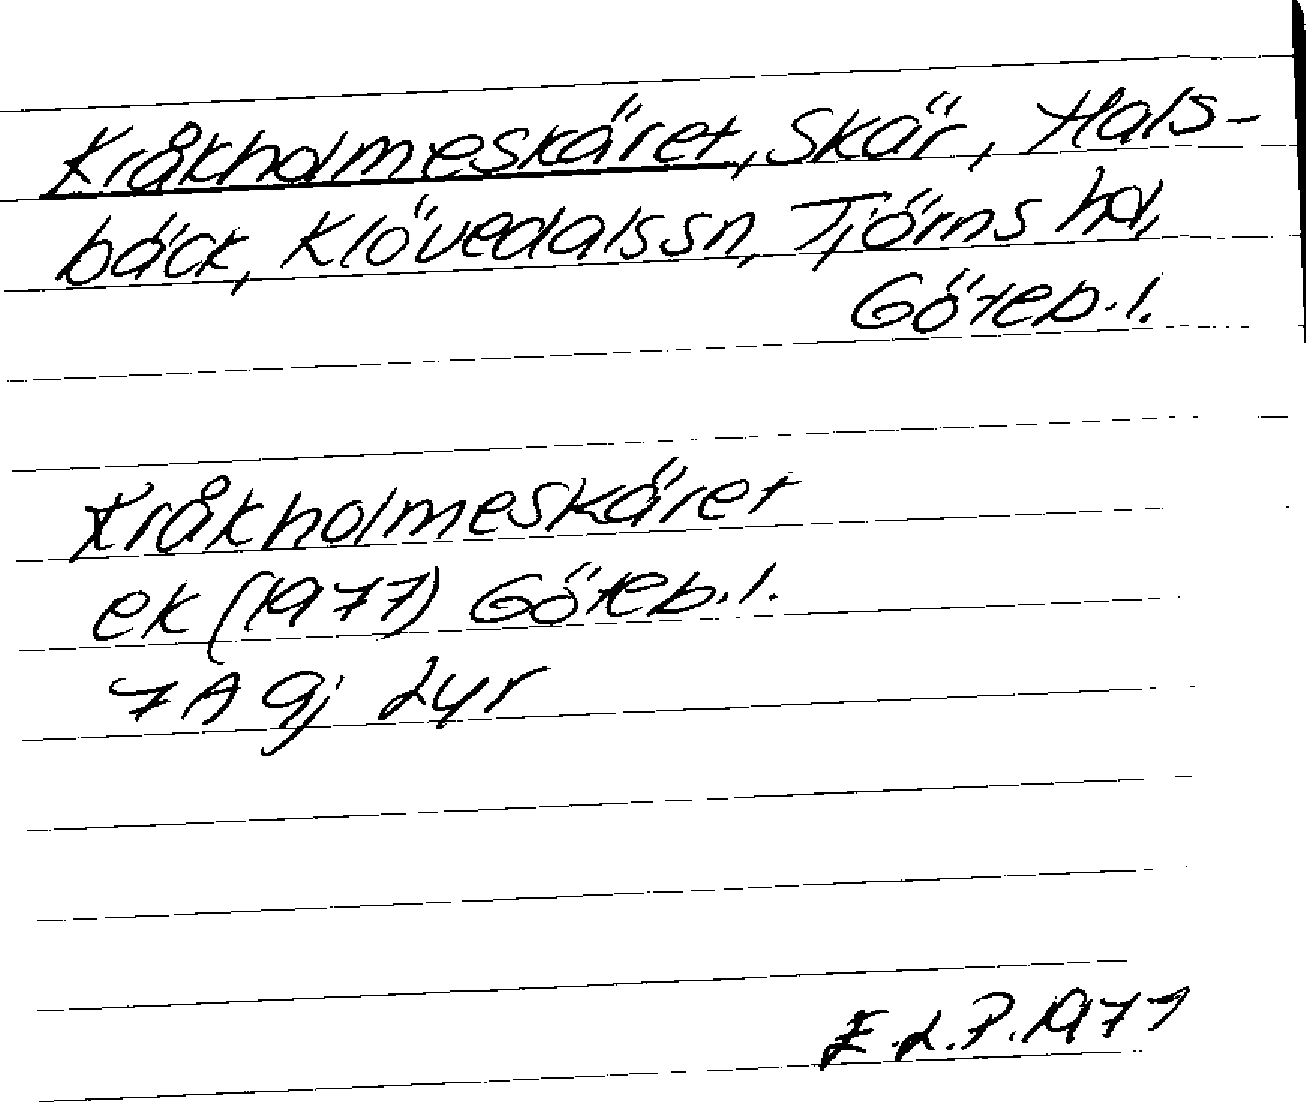 Kråkholmeskäret, Skär, Hals-
bäck, Klövedalssn, Tjörns hd,
Göteb. l.
Kråkholmeskäret
ek (1977) Göteb. l.
7A 9j Lyr
E.L.P. 1977